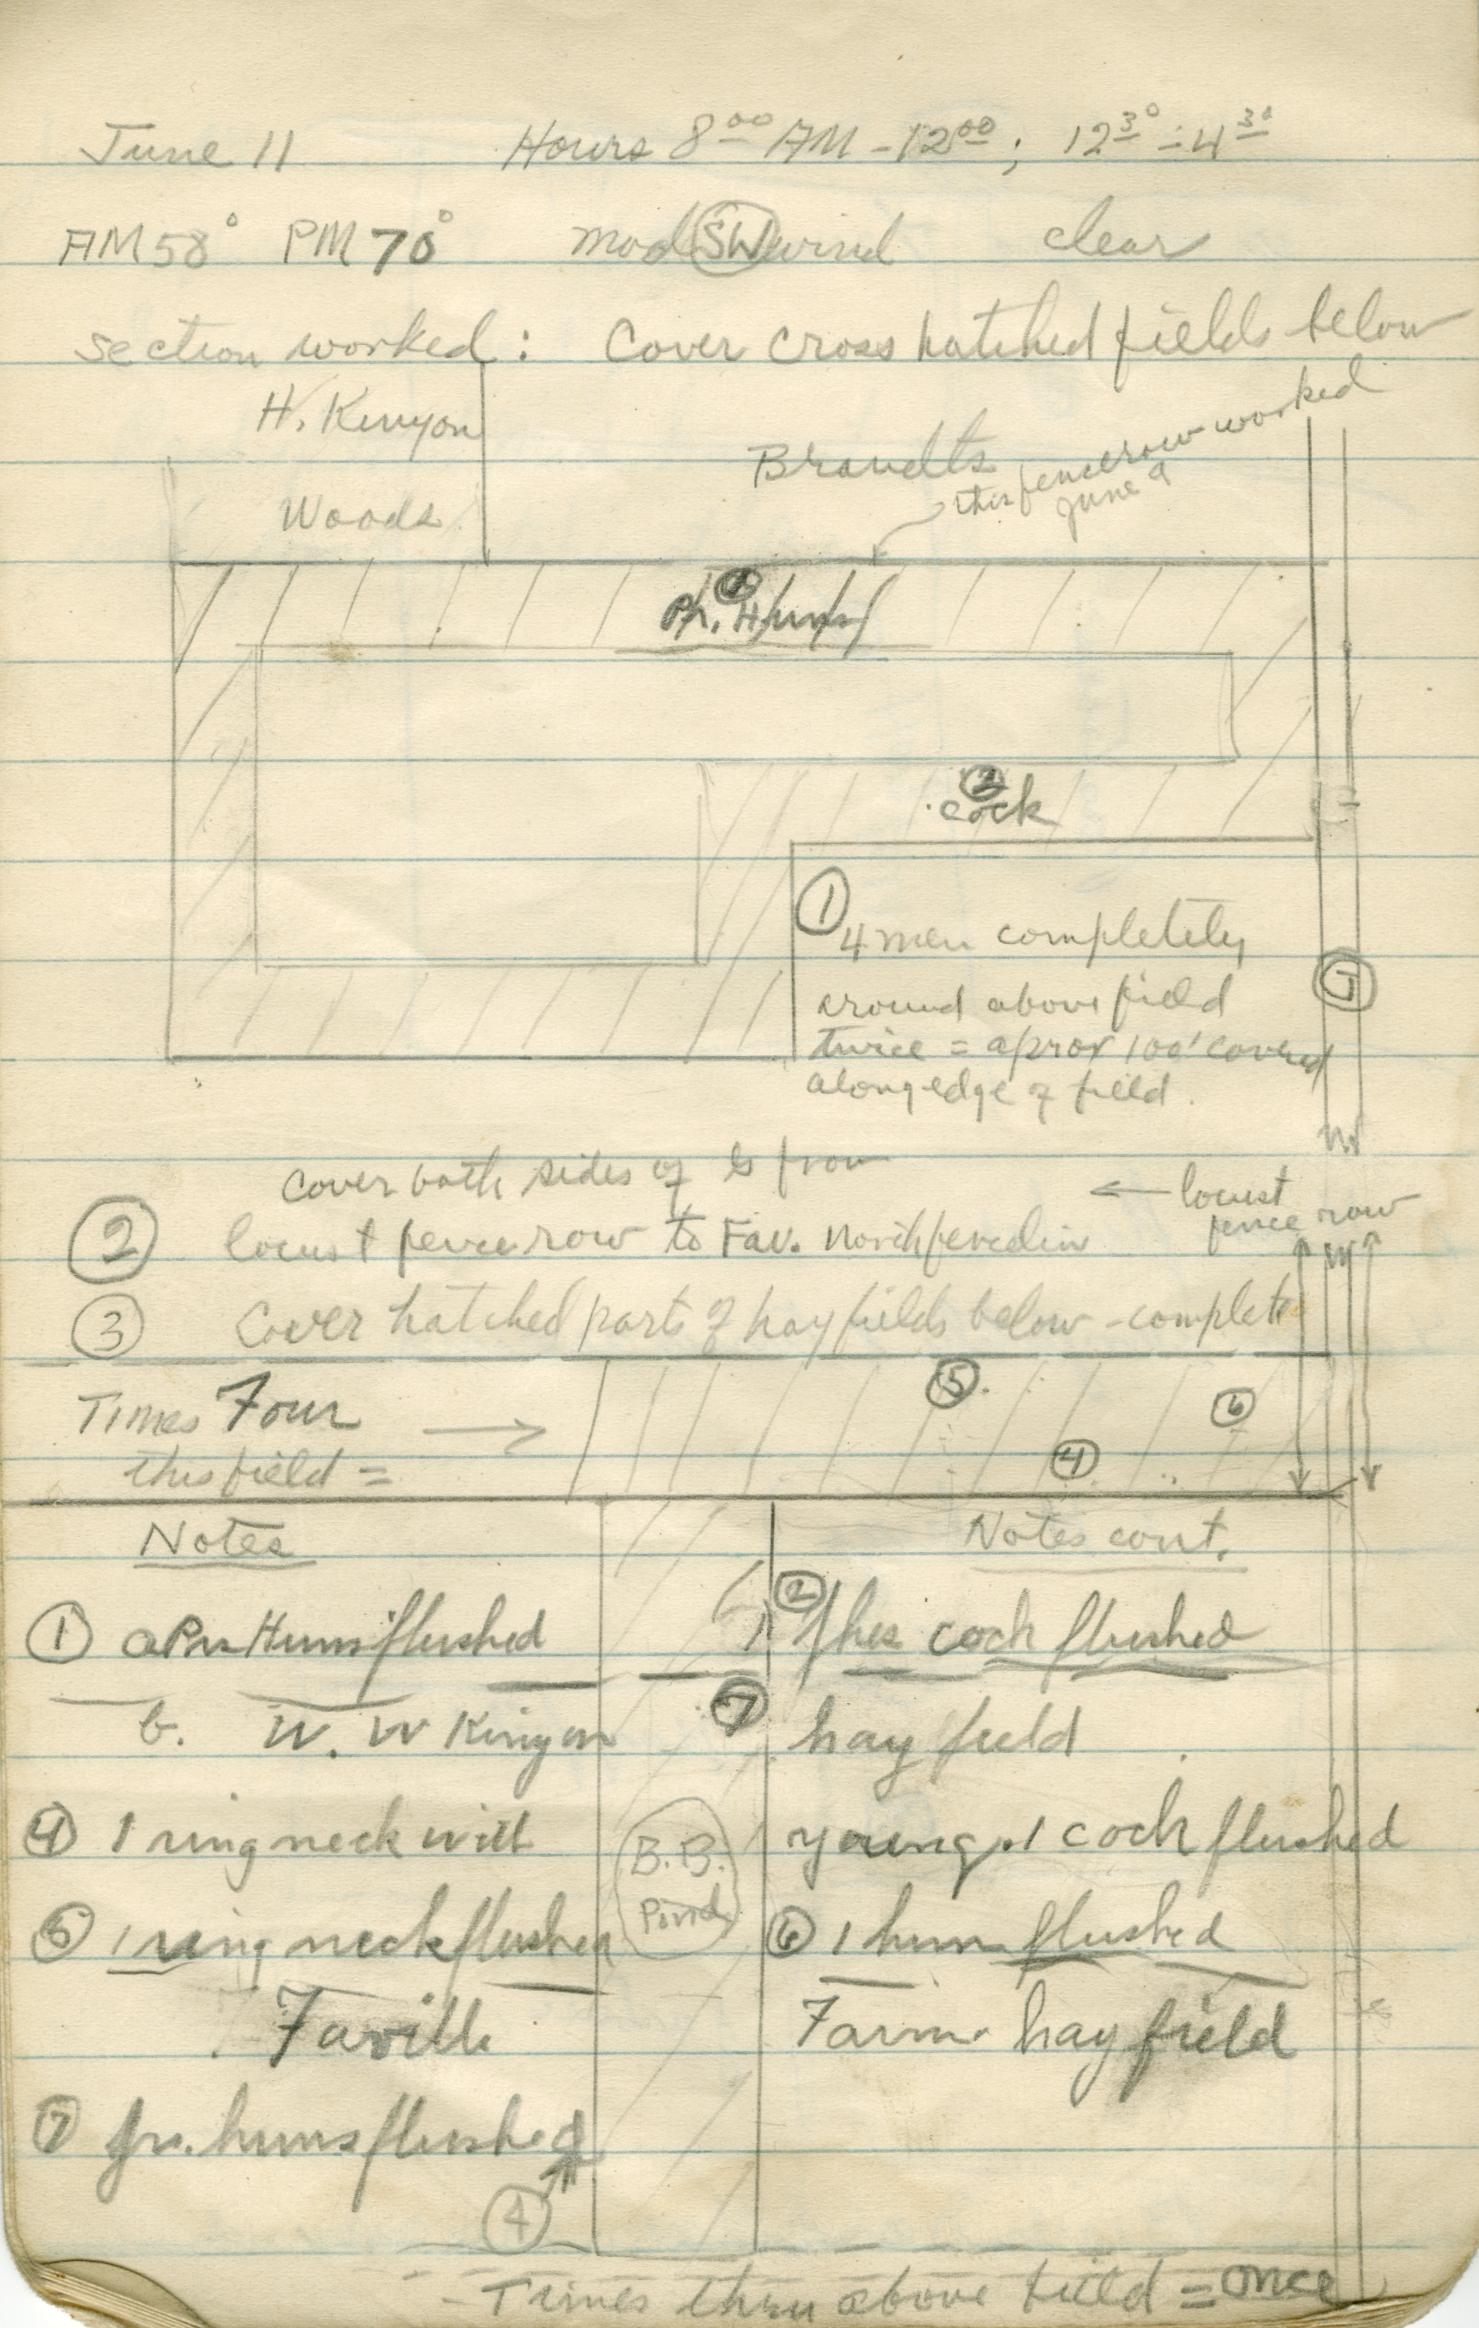 June 11 Hours 8⁰⁰ AM - 12⁰⁰; 12³⁰ - 4³⁰
AM 58° PM 70° mod SW wind clear
section worked: Cover cross hatched fields below
H. Kenyon
Woods
Brandts
this fencerow worked
June 9
①
Ph. Huns
②
cock
① 4 men completely
around above field
twice = aprox 100' covered
along edge of field.
⑦
cover both sides of from
← locust
fence row
② locust fence row to Fav. north
③ Cover hatched parts of hayfields below - complete
Times Four →
this field =
⑤
⑥
④
Notes
Notes cont.
① a Pr Huns flushed
② Phes cock flushed
b. W. W Kinyon
⑦
hay field
④ 1 ring neck with
young. 1 cock flushed
B.B.
Pond
⑤ 1 ring neck flushed
⑥ 1 hun flushed
Faville
Farm hay field
⑦ pr. huns flushed
④
Times thru above field = once